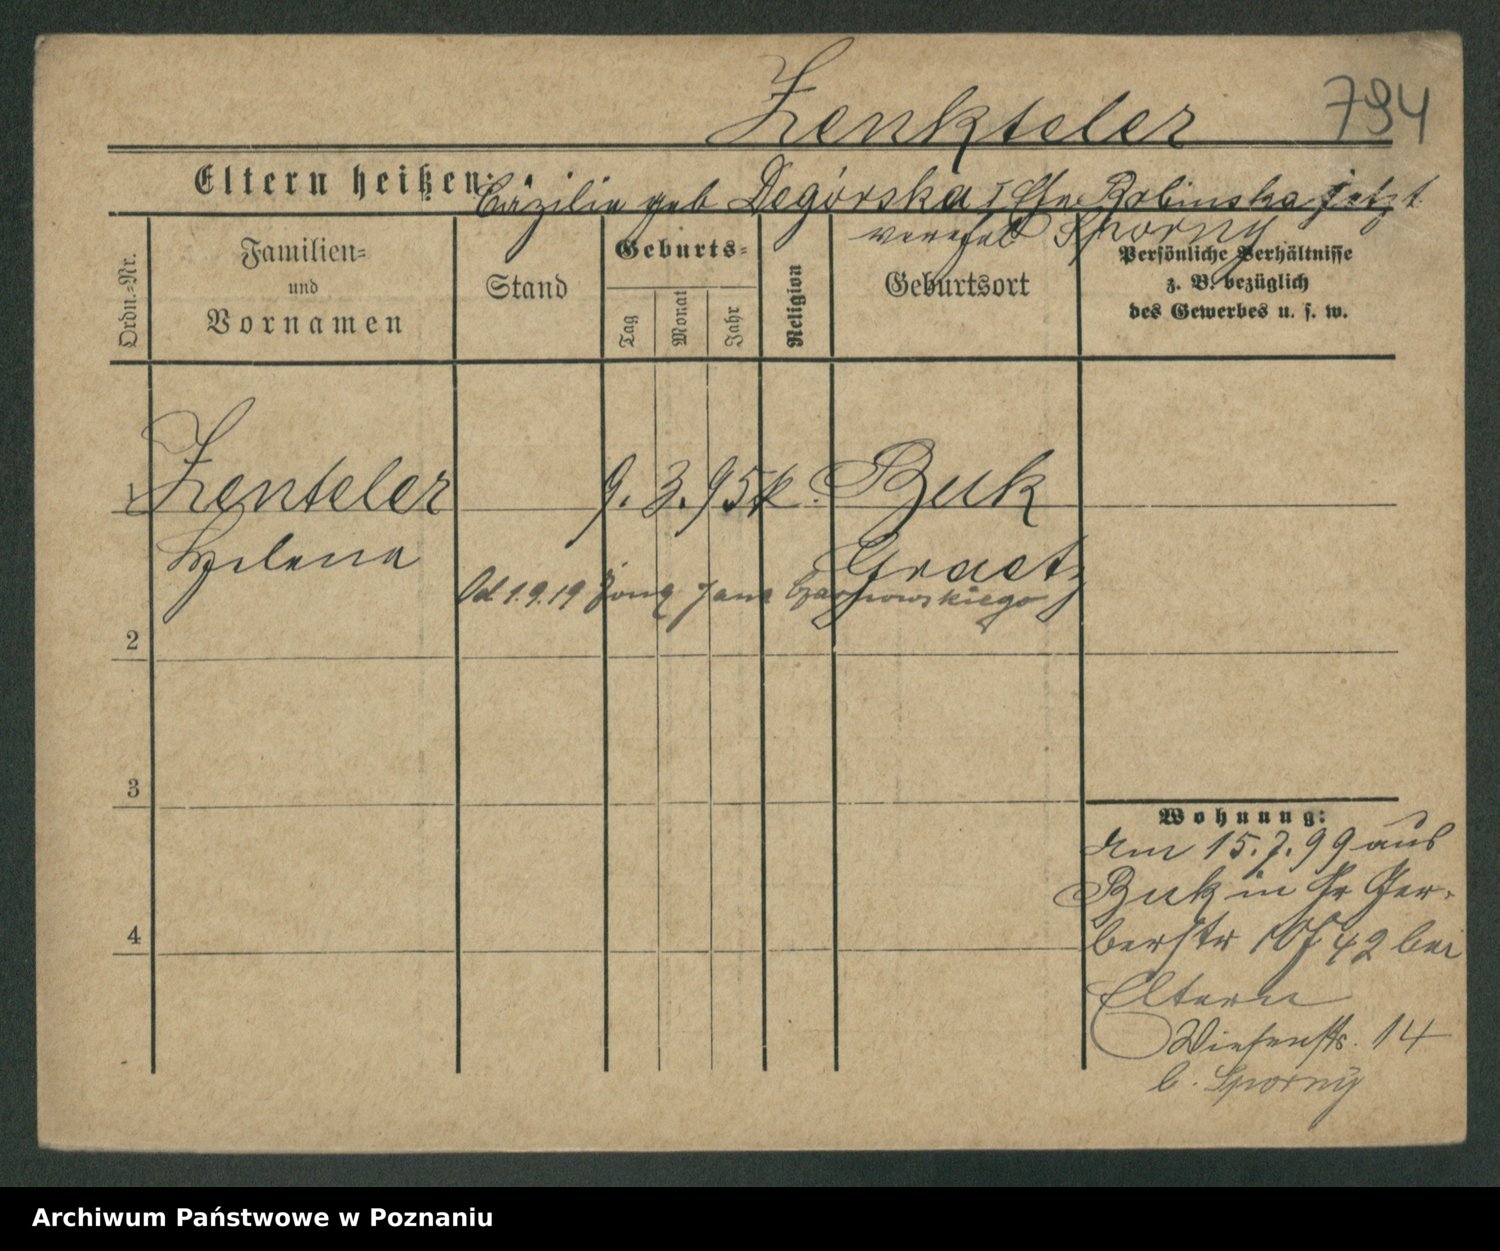 Zenkteler 794
Eltern heißen:
Cäzilia geb Degórska I Ehe Robinska jetzt
verehel Sporny
Ordn.-Nr.
Familien=
und
Vornamen
Stand
Geburts=
Tag
Monat
Jahr
Religion
Geburtsort
Persönliche Verhältnisse
z. B. bezüglich
des Gewerbes u. s. w.
1 Zenteler 9. 3. 95 k. Buk
Helena Graetz
Od 1.9.19 żoną Jana Czarnowskiego
2
3
4
Wohnung:
Am 15.7.99 aus
Buk in Gr Ger-
berstr 42 bei
Eltern
Wiesenstr. 14
b. Sporny
Archiwum Państwowe w Poznaniu